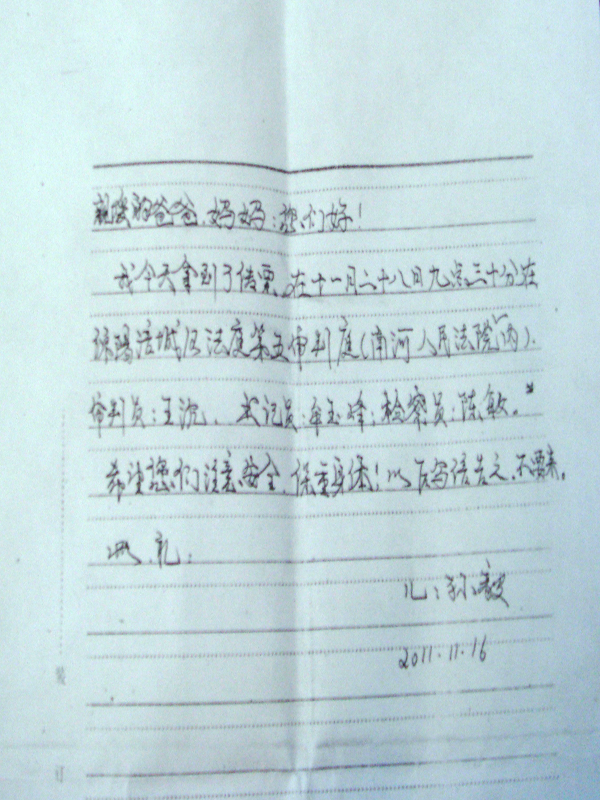 亲爱的爸爸、妈妈：您们好！
我今天拿到了传票，在十一月二十八日九点三十分在
涪城区法庭第五审判庭（南河人民法院内）、
审判员：王沉、书记员：牟玉峰；检察员：陈敏。
希望您们注意安全，保重身体！以后写信告之，不要来。
此 礼：
儿：孙毅
2011.11.16
装
订